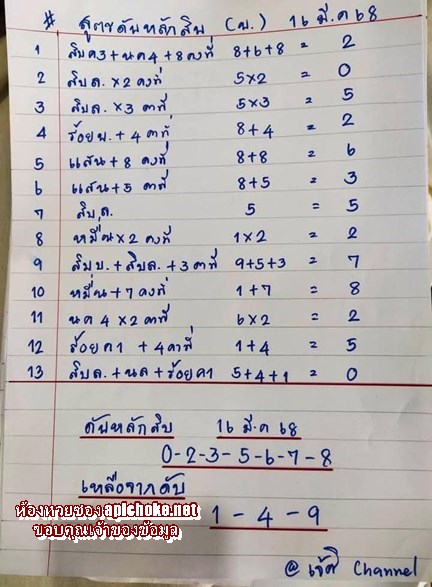 # สูตรดับหลักสิบ (บ.) 16 มี.ค 68
1 สิบค3+นค4+8คงที่ 8+6+8 = 2
2 สิบล. x2 คงที่ 5x2 = 0
3 สิบล. x3 คาที่ 5x3 = 5
4 ร้อยบ.+4 คาที่ 8+4 = 2
5 แสน+8 คงที่ 8+8 = 6
6 แสน+5 คาที่ 8+5 = 3
7 สิบล. 5 = 5
8 หมื่นx2 คงที่ 1x2 = 2
9 สิบบ.+สิบล.+3คาที่ 9+5+3 = 7
10 หมื่น+7 คงที่ 1+7 = 8
11 นค 4x2 คาที่ 6x2 = 2
12 ร้อยค1 +4คาที่ 1+4 = 5
13 สิบล.+นล+ร้อยค1 5+4+1 = 0
ดับหลักสิบ 16 มี.ค 68
0-2-3-5-6-7-8
เหลือจากดับ
1-4-9
ห้องหวยซอง apichoke.net
ขอบคุณเจ้าของข้อมูล
@ Channel